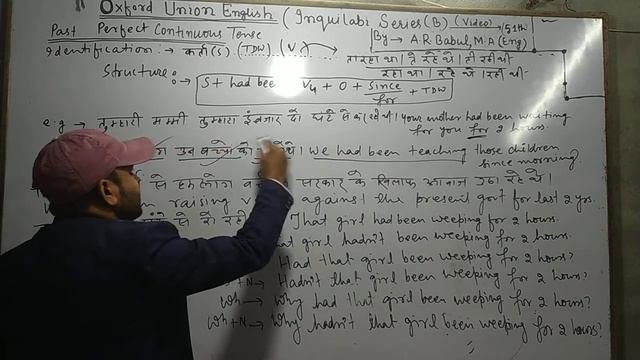 Oxford Union English (Inquilabi Series (B) (Video) 51th
Past Perfect Continuous Tense
By → A.R Babul, M.A (Eng)
Identification :→ कर्ता (S) (TDW) (V)
ता रहा था। ते रहे थे। ती रही थी
रहा था। रहे थे। रही थी
Structure :→ S + had been V4 + O + since/for + TDW
e.g → तुम्हारी मम्मी तुम्हारा इंतजार दो घंटे से कर रही थी। your mother had been waiting
for you for 2 hours.
उन बच्चों को थे। We had been teaching those children
since morning.
से हम लोग सरकार के खिलाफ आवाज उठा रहे थे।
raising against the present govt for last 2 yrs.
से रो रही That girl had been weeping for 2 hours.
That girl hadn't been weeping for 2 hours.
Had that girl been weeping for 2 hours?
+N → Hadn't that girl been weeping for 2 hours?
Wh → Why had that girl been weeping for 2 hours?
Wh+N → Why hadn't that girl been weeping for 2 hours?